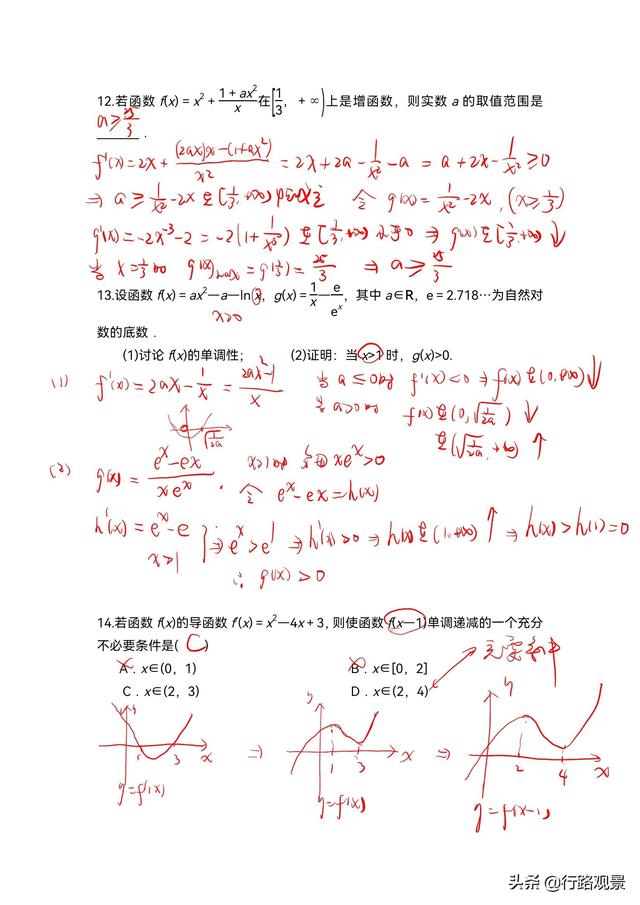 12.若函数 f(x) = x² + (1 + ax²)/x 在[1/3, + ∞)上是增函数，则实数 a 的取值范围是
a ≥ 25/3 .
f'(x) = 2x + ((2ax)x - (1+ax²))/x² = 2x + 2a - 1/x² - a = a + 2x - 1/x² ≥ 0
⇒ a ≥ 1/x² - 2x 在 [1/3, +∞) 令 g(x) = 1/x² - 2x, (x ≥ 1/3)
g'(x) = -2x⁻³ - 2 = -2(1 + 1/x³) 在 [1/3, +∞) 小于0 ⇒ g(x) 在 [1/3, +∞) ↓
当 x = 1/3 时 g(x)max = g(1/3) = 25/3 ⇒ a ≥ 25/3
13.设函数 f(x) = ax²—a—ln x，g(x) = 1/x — e/eˣ，其中 a∈R，e = 2.718…为自然对
x>0
数的底数．
(1)讨论 f(x)的单调性； (2)证明：当 x>1 时，g(x)>0.
(1) f'(x) = 2ax - 1/x = (2ax² - 1)/x 当 a ≤ 0 时 f'(x) < 0 ⇒ f(x) 在 (0, +∞) ↓
当 a > 0 时 f(x) 在 (0, √(1/2a)) ↓
√(1/2a) 在 (√(1/2a), +∞) ↑
(2) g(x) = (eˣ - ex)/(xeˣ) . x>1 时 xeˣ > 0
令 eˣ - ex = h(x)
h'(x) = eˣ - e
x > 1 } ⇒ eˣ > e¹ ⇒ h'(x) > 0 ⇒ h(x) 在 (1, +∞) ↑ ⇒ h(x) > h(1) = 0
∴ g(x) > 0
14.若函数 f(x)的导函数 f'(x) = x²—4x + 3，则使函数 f(x—1)单调递减的一个充分
不必要条件是( C ) 充要条件
A．x∈(0，1) B．x∈[0，2]
C．x∈(2，3) D．x∈(2，4)
y 1 3 x y=f'(x) ⇒ y 1 3 x y=f(x) ⇒ y 2 4 x y=f(x-1)
头条 @行路观景